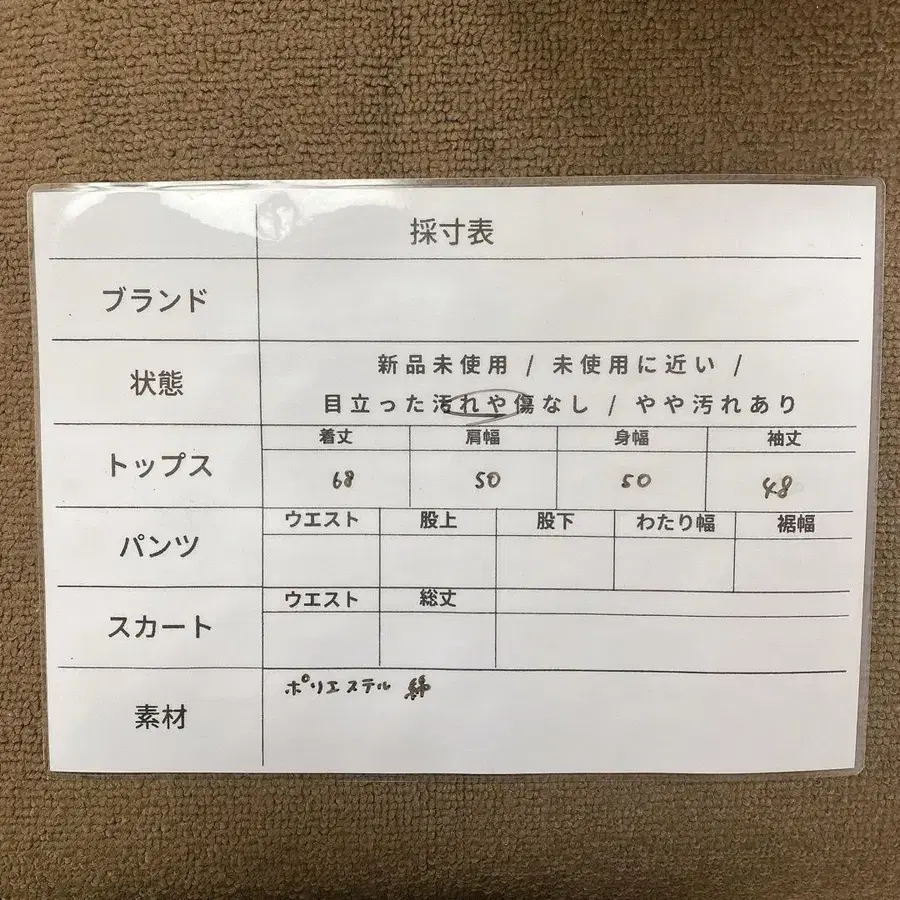 採寸表
ブランド
状態
新品未使用 / 未使用に近い /
目立った汚れや傷なし / やや汚れあり
トップス
着丈 肩幅 身幅 袖丈
68 50 50 48
パンツ
ウエスト 股上 股下 わたり幅 裾幅
スカート
ウエスト 総丈
素材
ポリエステル 綿